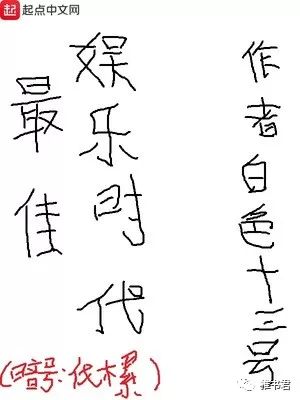 起 起点中文网
最佳
娱乐时代
作者白色十三号
(暗号:伐木累)
推书君